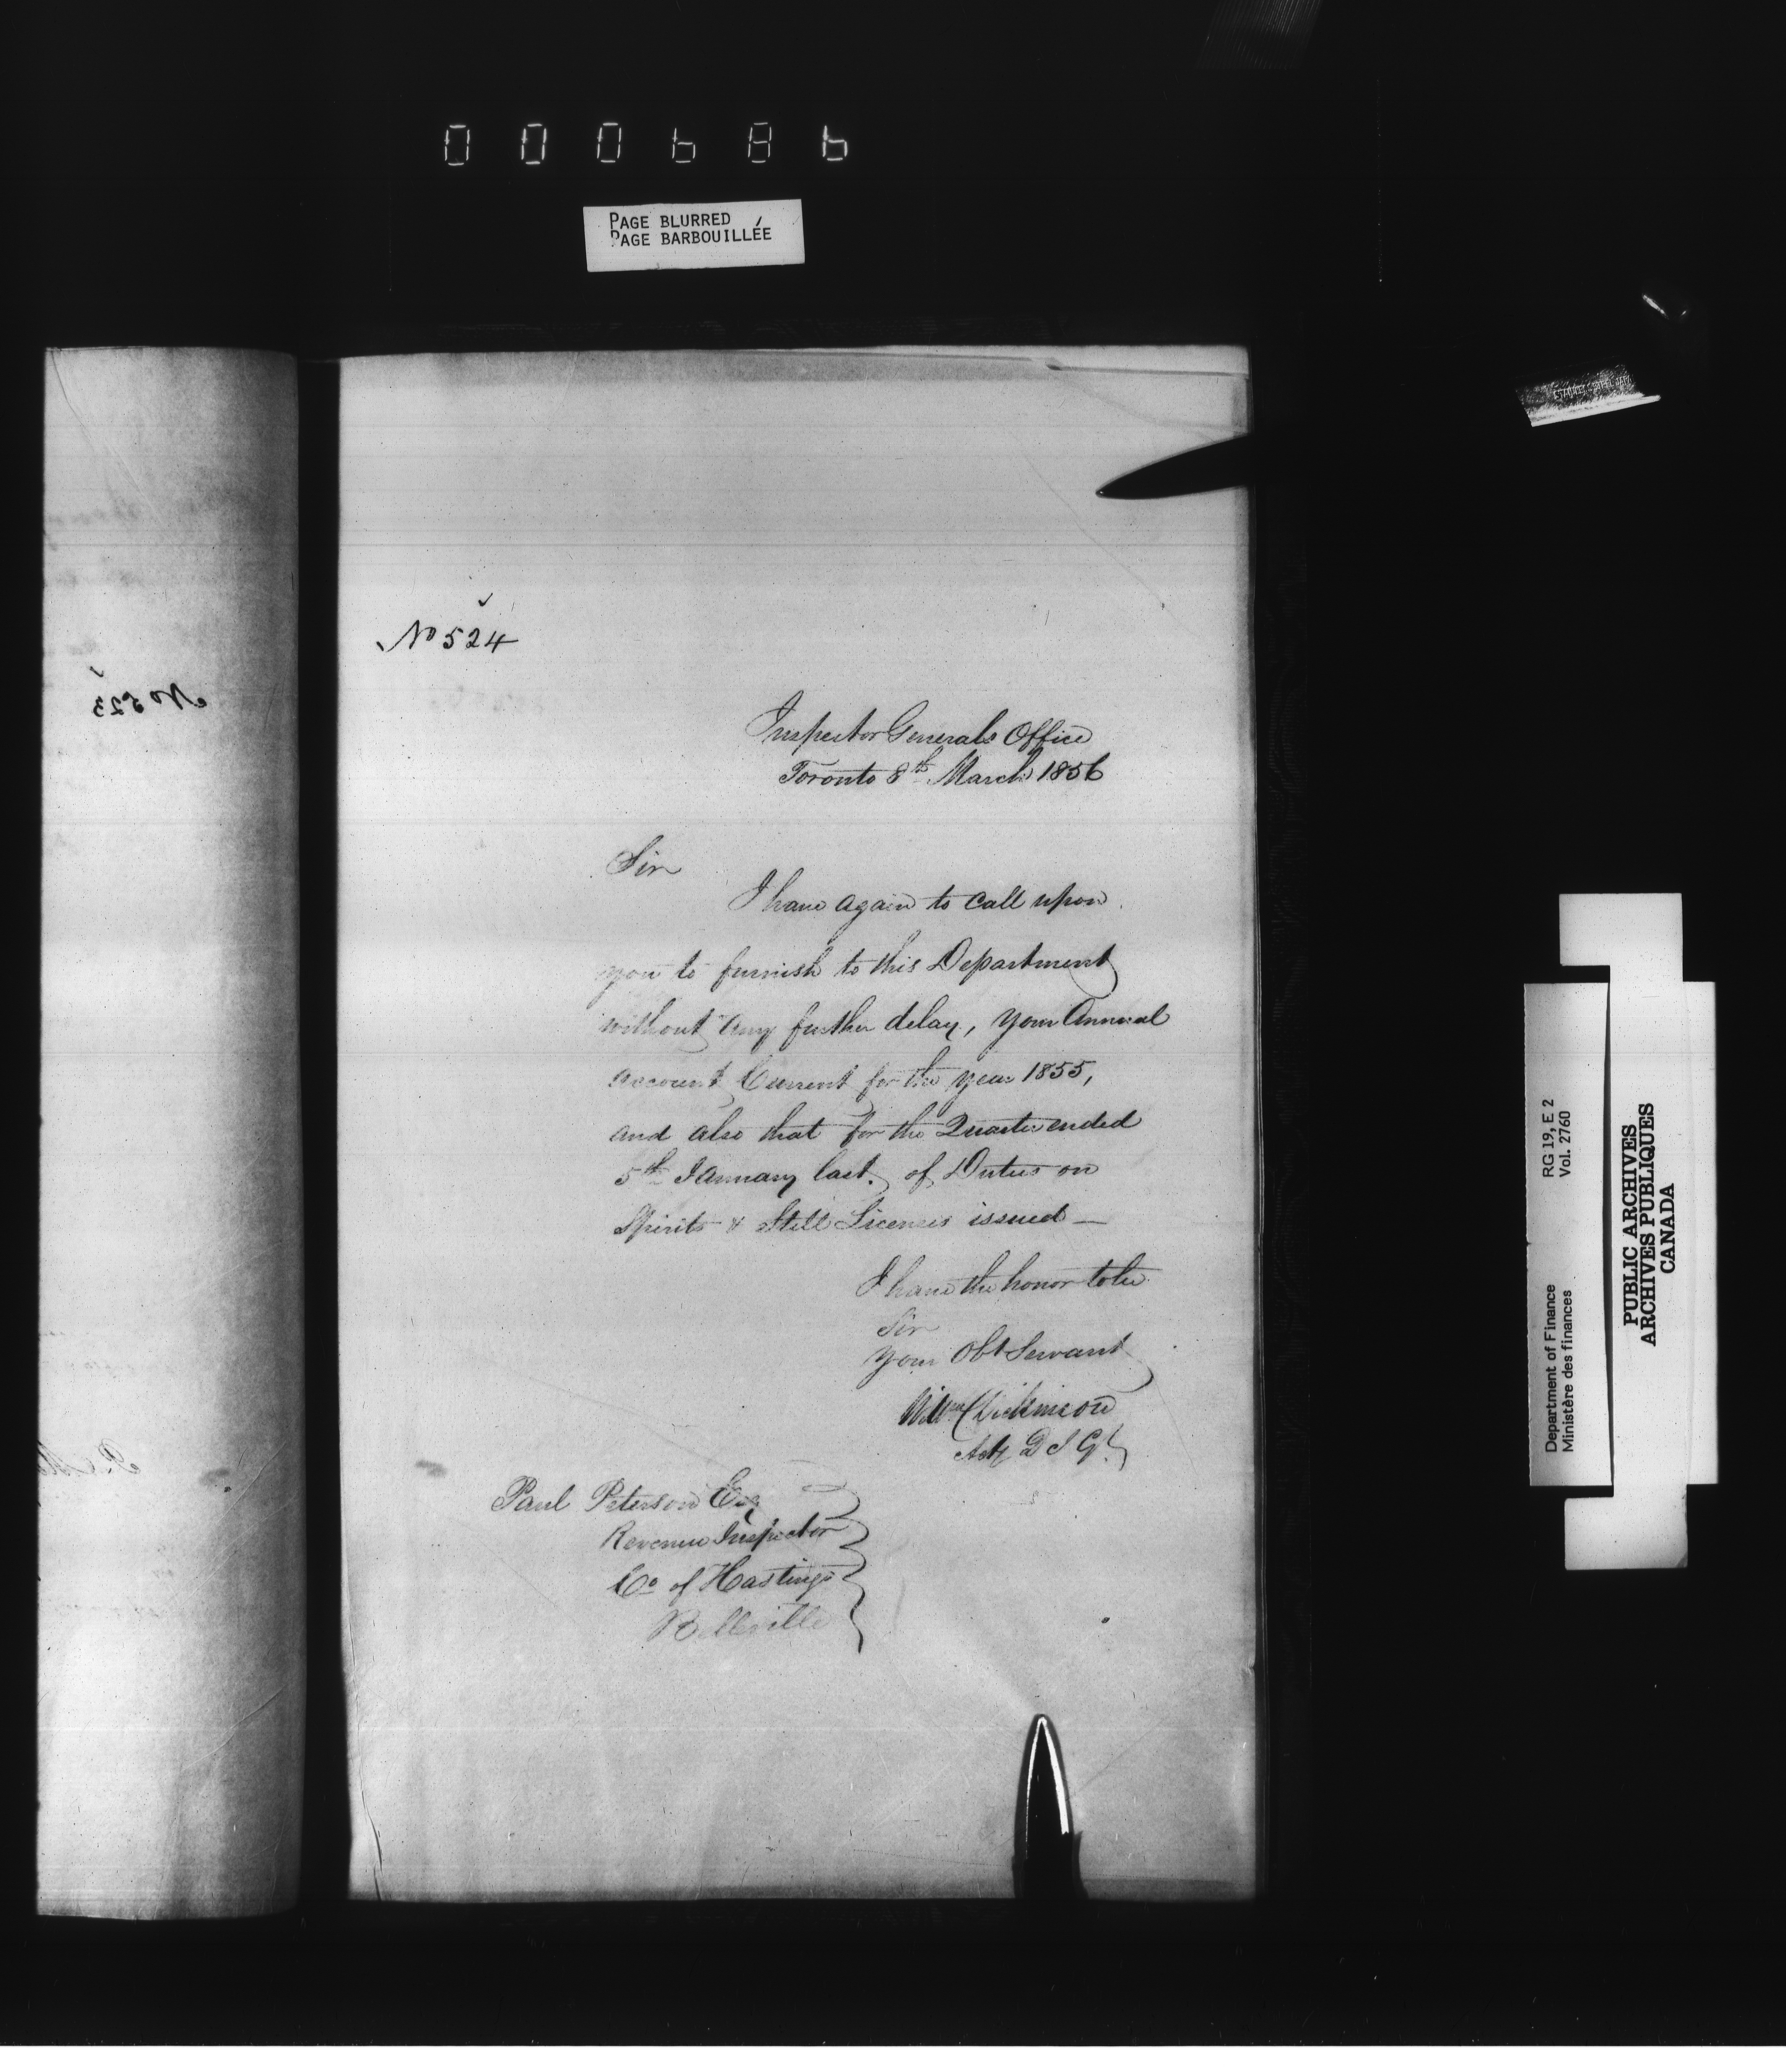 000686
PAGE BLURRED
PAGE BARBOUILLÉE
No 523
No 524
Inspector Generals Office
Toronto 8th March 1856
Sir
I have again to call upon
you to furnish to this Department
without any further delay, your Annual
Account Current for the year 1855,
and also that for the Quarter ended
5th January last, of Duties on
Spirits & Still Licenses issued —
I have the honor to be
Sir
Your Obt Servant
Willm Dickinson
Actg D I Gl
Paul Peterson Esq
Revenue Inspector
Co of Hastings
Belleville
RG 19, E 2
Vol. 2760
Department of Finance
Ministère des finances
PUBLIC ARCHIVES
ARCHIVES PUBLIQUES
CANADA